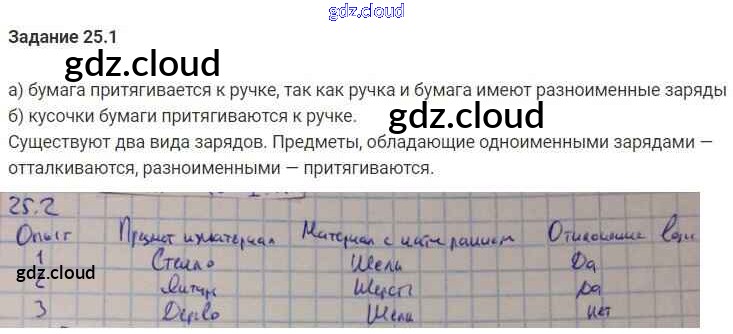 gdz.cloud
Задание 25.1
gdz.cloud
а) бумага притягивается к ручке, так как ручка и бумага имеют разноименные заряды
б) кусочки бумаги притягиваются к ручке.
gdz.cloud
Существуют два вида зарядов. Предметы, обладающие одноименными зарядами —
отталкиваются, разноименными — притягиваются.
25.2
Опыт Предмет и материал Материал с натиранием Отклонение воды
1 Стекло Шелк Да
gdz.cloud
2 Шерсть Да
3 Дерево Шелк нет